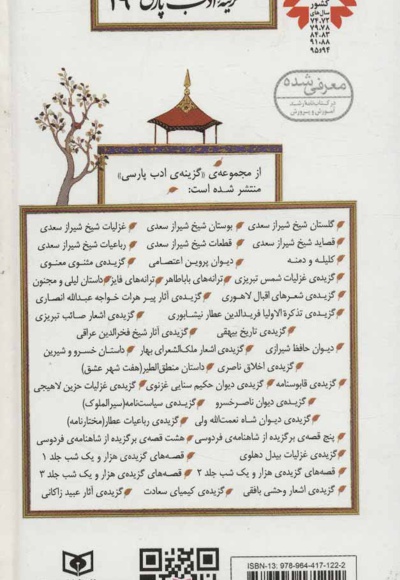 گزینه ادب پارسی ۴۹
کشور
سال‌های
۷۴،۷۲
۷۹،۷۸
۸۴،۸۳
۹۱،۸۸
۹۵،۹۴
معرفی شده
در کتابنامه رشد
آموزش و پرورش
از مجموعه‌ی «گزینه‌ی ادب پارسی»
منتشر شده است:
گلستان شیخ شیراز سعدی بوستان شیخ شیراز سعدی غزلیات شیخ شیراز سعدی
قصاید شیخ شیراز سعدی قطعات شیخ شیراز سعدی رباعیات شیخ شیراز سعدی
کلیله و دمنه دیوان پروین اعتصامی گزیده‌ی مثنوی معنوی
گزیده‌ی غزلیات شمس تبریزی ترانه‌های باباطاهر ترانه‌های فایز داستان لیلی و مجنون
گزیده‌ی شعرهای اقبال لاهوری گزیده‌ی آثار پیر هرات خواجه عبدالله انصاری
گزیده‌ی تذکرة الاولیا فریدالدین عطار نیشابوری گزیده‌ی اشعار صائب تبریزی
گزیده‌ی تاریخ بیهقی گزیده‌ی آثار شیخ فخرالدین عراقی
دیوان حافظ شیرازی گزیده‌ی اشعار ملک‌الشعرای بهار داستان خسرو و شیرین
گزیده‌ی اخلاق ناصری داستان منطق‌الطیر(هفت شهر عشق)
گزیده‌ی قابوسنامه گزیده‌ی دیوان حکیم سنایی غزنوی گزیده‌ی غزلیات حزین لاهیجی
گزیده‌ی دیوان ناصرخسرو گزیده‌ی سیاست‌نامه(سیرالملوک)
گزیده‌ی دیوان شاه نعمت‌الله ولی گزیده‌ی رباعیات عطار(مختارنامه)
پنج قصه‌ی برگزیده از شاهنامه‌ی فردوسی هشت قصه‌ی برگزیده از شاهنامه‌ی فردوسی
گزیده‌ی غزلیات بیدل دهلوی قصه‌های گزیده‌ی هزار و یک شب جلد ۱
قصه‌های گزیده‌ی هزار و یک شب جلد ۲ قصه‌های گزیده‌ی هزار و یک شب جلد ۳
گزیده‌ی اشعار وحشی بافقی گزیده‌ی کیمیای سعادت گزیده‌ی آثار عبید زاکانی
ISBN-13: 978-964-417-122-2